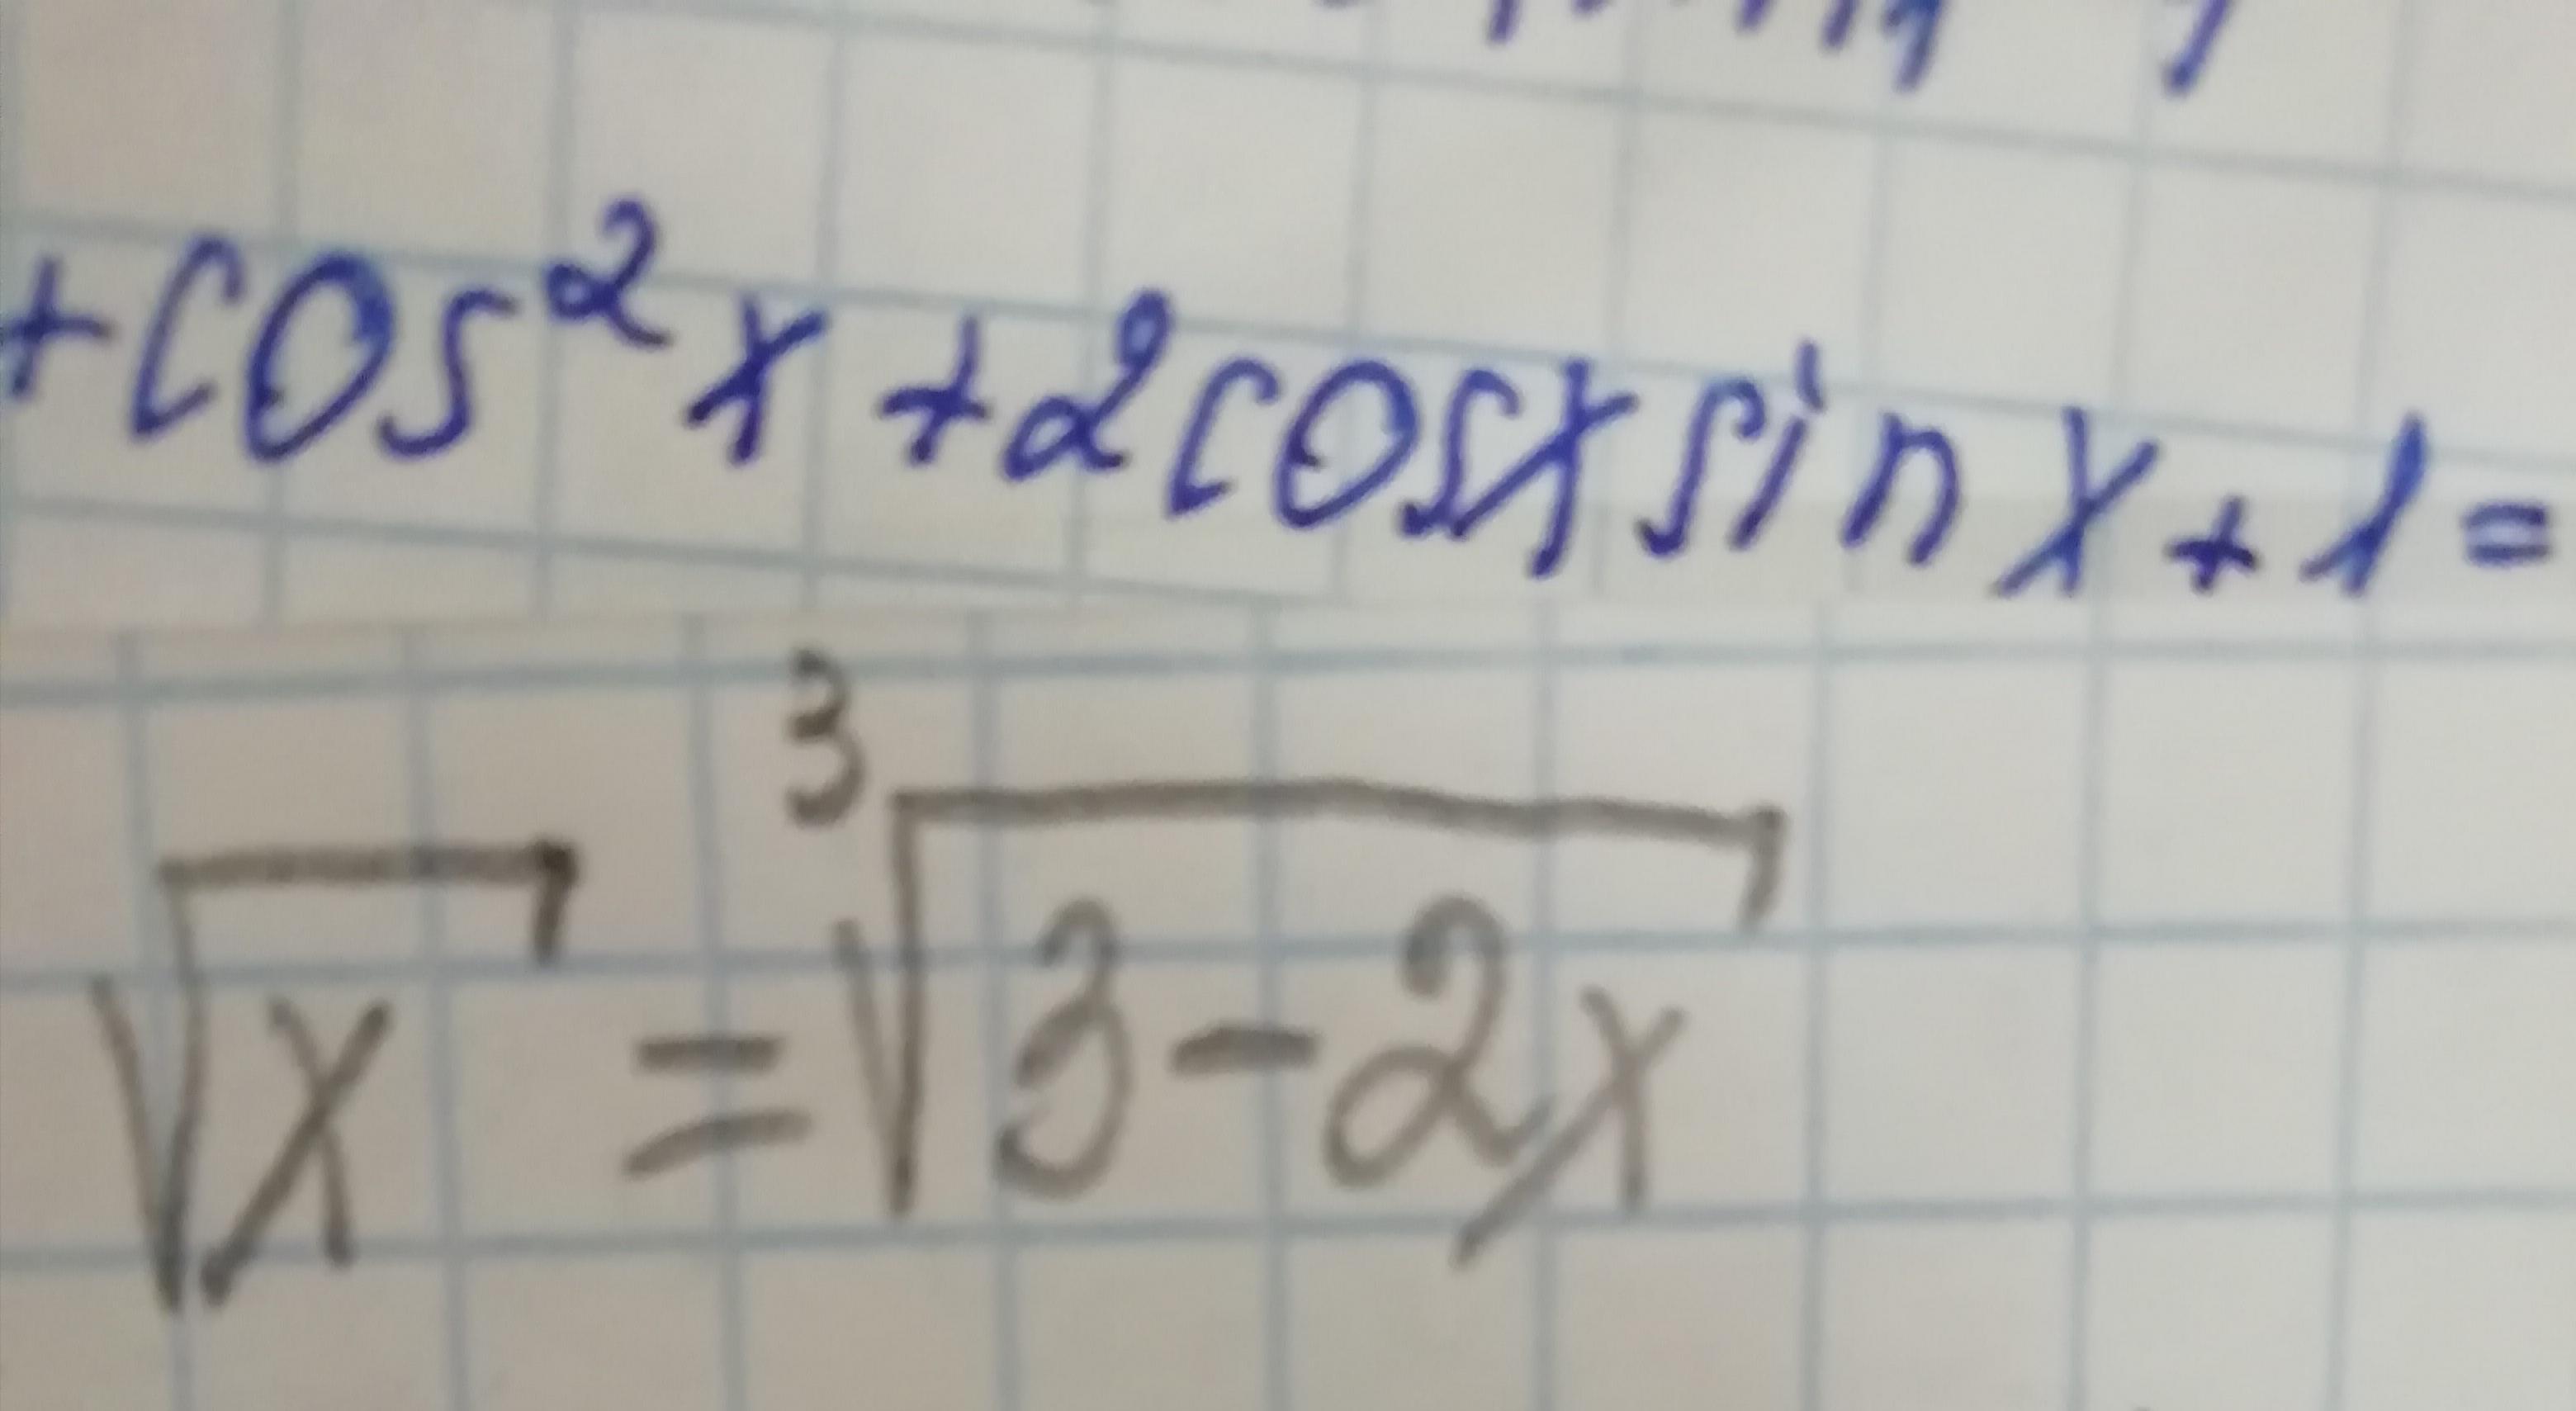 +cos²x+2cosx sin x+1=
√x = ³√3-2x